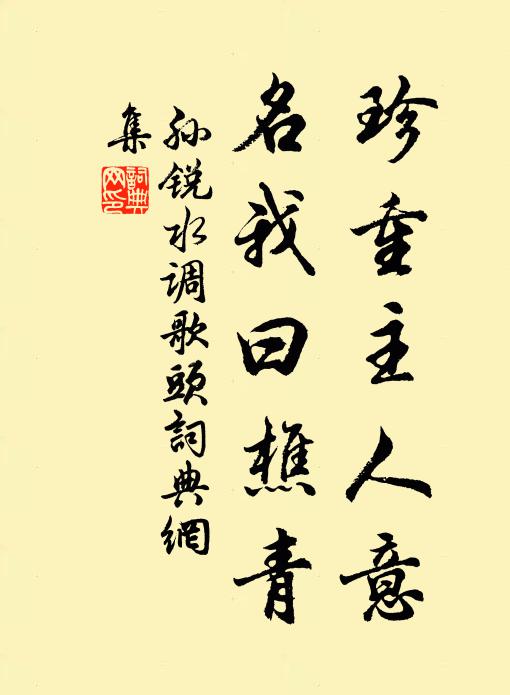 珍重主人意
名我曰樵青
孙锐水调歌头詞典網
集
詞典网印